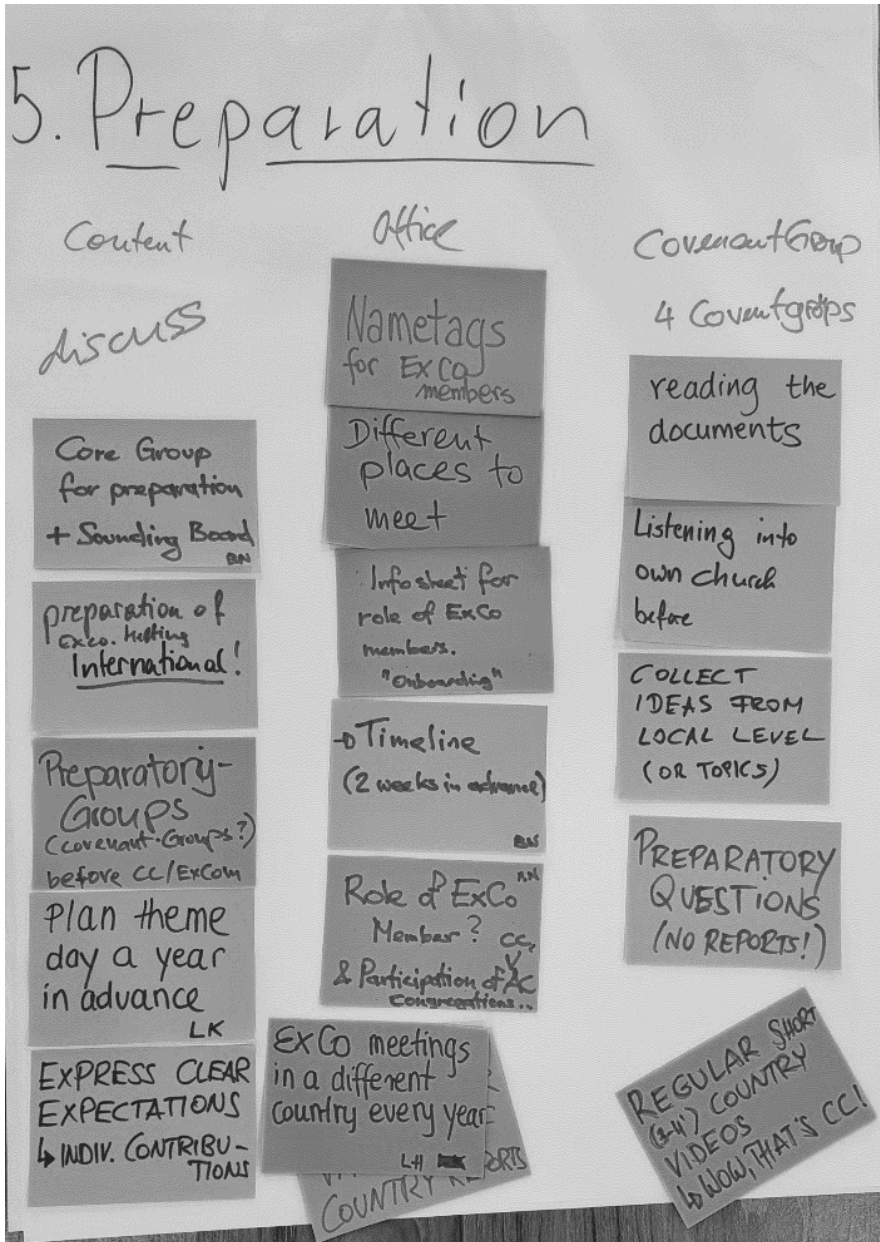 5. Preparation
Content
discuss
Core Group
for preparation
+ Sounding Board
BN
preparation of
Exco. Meeting
International!
Preparatory-
Groups
(covenant-Groups?)
before CC/ExCom
Plan theme
day a year
in advance
LK
EXPRESS CLEAR
EXPECTATIONS
↳ INDIV. CONTRIBU-
TIONS
Office
Nametags
for ExCo
members
Different
places to
meet
Infosheet for
role of ExCo
members.
"Onboarding"
→ Timeline
(2 weeks in advance)
BN
Role of ExCo
BN
Member? CC,
& Participation of AC
congregations..
ExCo meetings
in a different
country every year
LH
COUNTRY
CovenantGroup
4 Coventgroups
reading the
documents
Listening into
own church
before
COLLECT
IDEAS FROM
LOCAL LEVEL
(OR TOPICS)
PREPARATORY
QUESTIONS
(NO REPORTS!)
REGULAR SHORT
(3-4') COUNTRY
VIDEOS
↳ WOW, THAT'S CC!